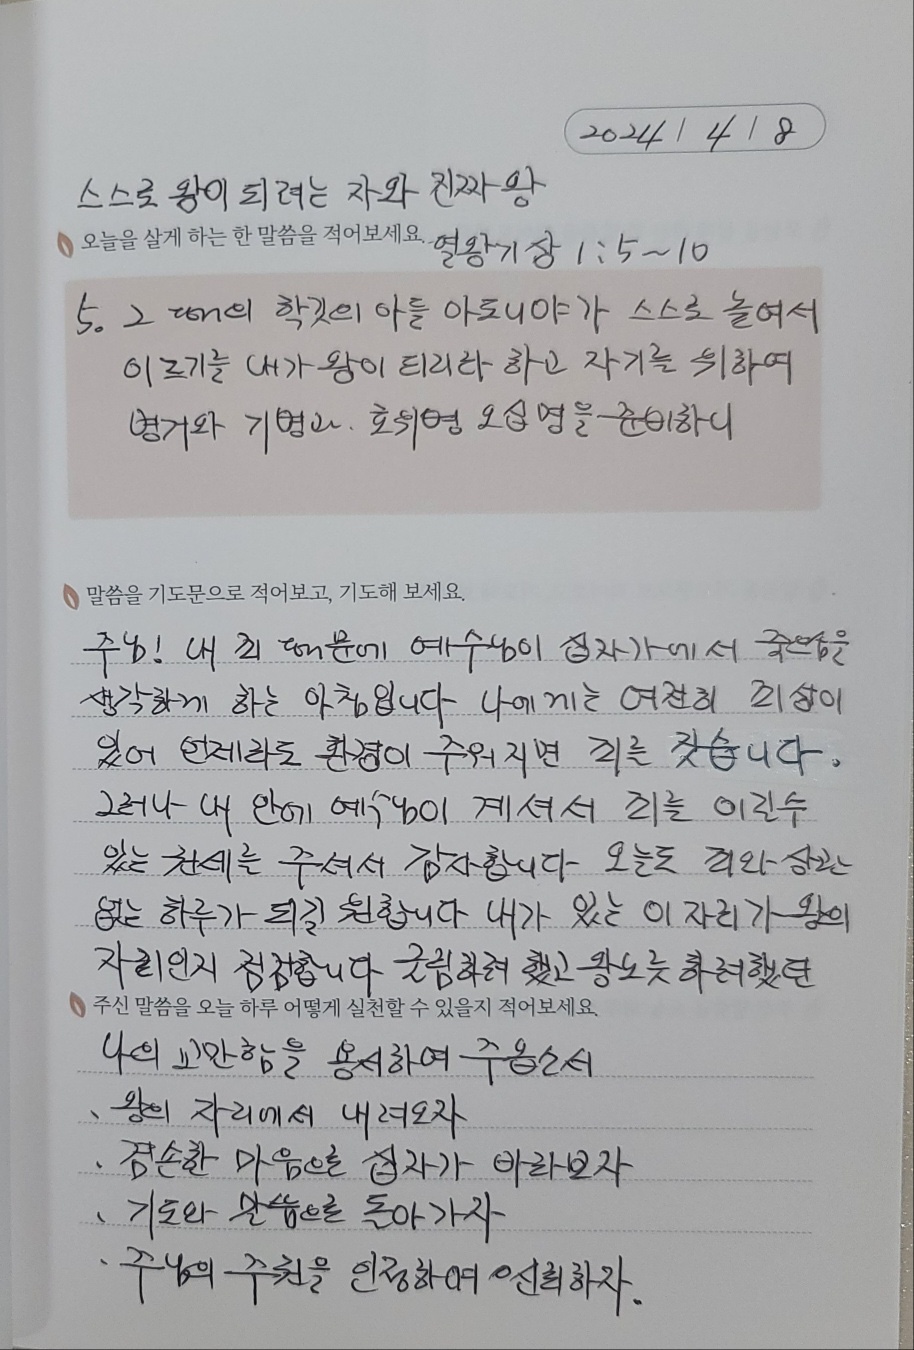 2024 / 4 / 8
스스로 왕이 되려는 자와 진짜 왕
오늘을 살게 하는 한 말씀을 적어보세요.
열왕기상 1:5~10
5. 그 때에 학깃의 아들 아도니야가 스스로 높여서
이르기를 내가 왕이 되리라 하고 자기를 위하여
병거와 기병과 호위병 오십 명을 준비하니
말씀을 기도문으로 적어보고, 기도해 보세요.
주님! 내 죄 때문에 예수님이 십자가에서 죽으심을
생각하게 하는 아침입니다 나에게는 여전히 죄성이
있어 언제라도 환경이 주워지면 죄를 짓습니다.
그러나 내 안에 예수님이 계셔서 죄를 이길수
있는 권세를 주셔서 감사합니다 오늘도 죄와 상관
없는 하루가 되길 원합니다 내가 있는 이 자리가 왕의
자리인지 점검합니다 군림하려 했고 왕노릇 하려했던
주신 말씀을 오늘 하루 어떻게 실천할 수 있을지 적어보세요.
나의 교만함을 용서하여 주옵소서
、왕의 자리에서 내려오자
、겸손한 마음으로 십자가 바라보자
、기도와 말씀으로 돌아가자
、주님의 주권을 인정하며 신뢰하자.